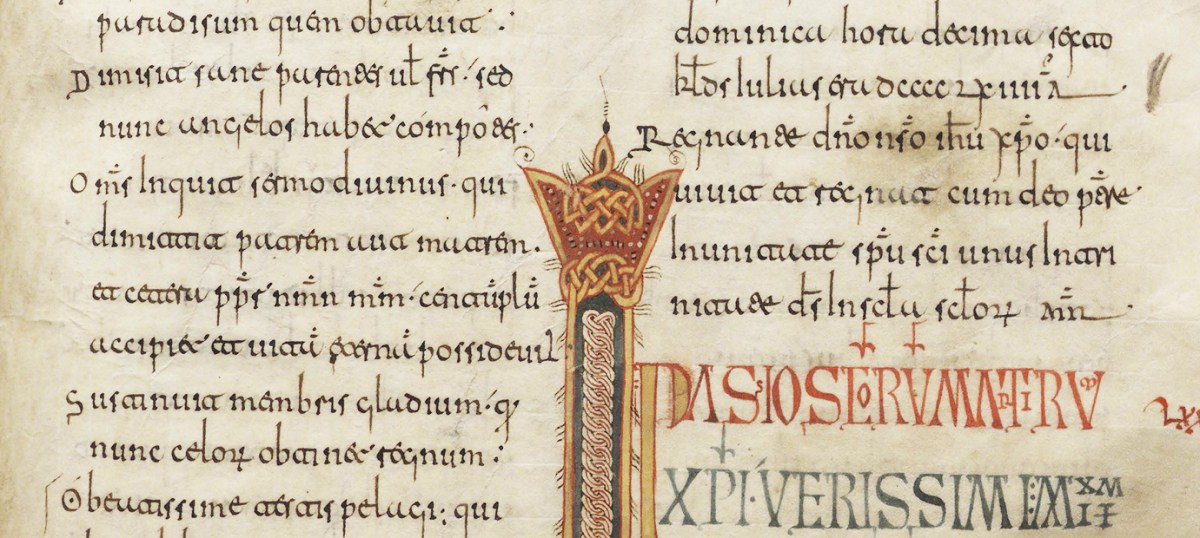 paradisum quem obtavit :
Dimisit sane parentes ul frs · sed
nunc angelos habet conpotes ·
Oms Inquit sermo divinus · qui
dimittit patrem aut matrem ·
et cetera pps nmn mm · centuplu
accipiet et vitā eternā possidevit
Sustinuit menbris gladium · q
nunc celorꝝ obtinet regnum :
O beatissime testis pelagi ; qui
dominica hora decima sexto
klds Iulias era dcccc
Regnante dno nso ihu xpo · qui
vivit et regnat cum deo patre
In unitate spu sci unus In tri
nitate ds In scla sclorꝝ amn
PASSIO SCORUM MARTIRU
XPI · VERISSIMI : MAXIM